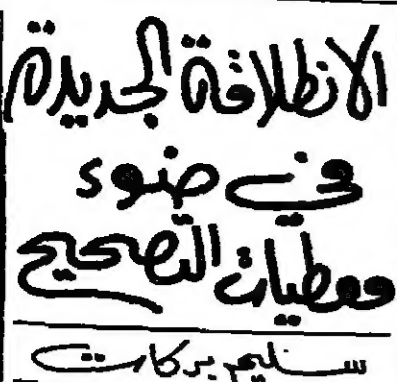 الانطلاقة الجديدة
في ضوء
معطيات التصحيح
سليم بركات